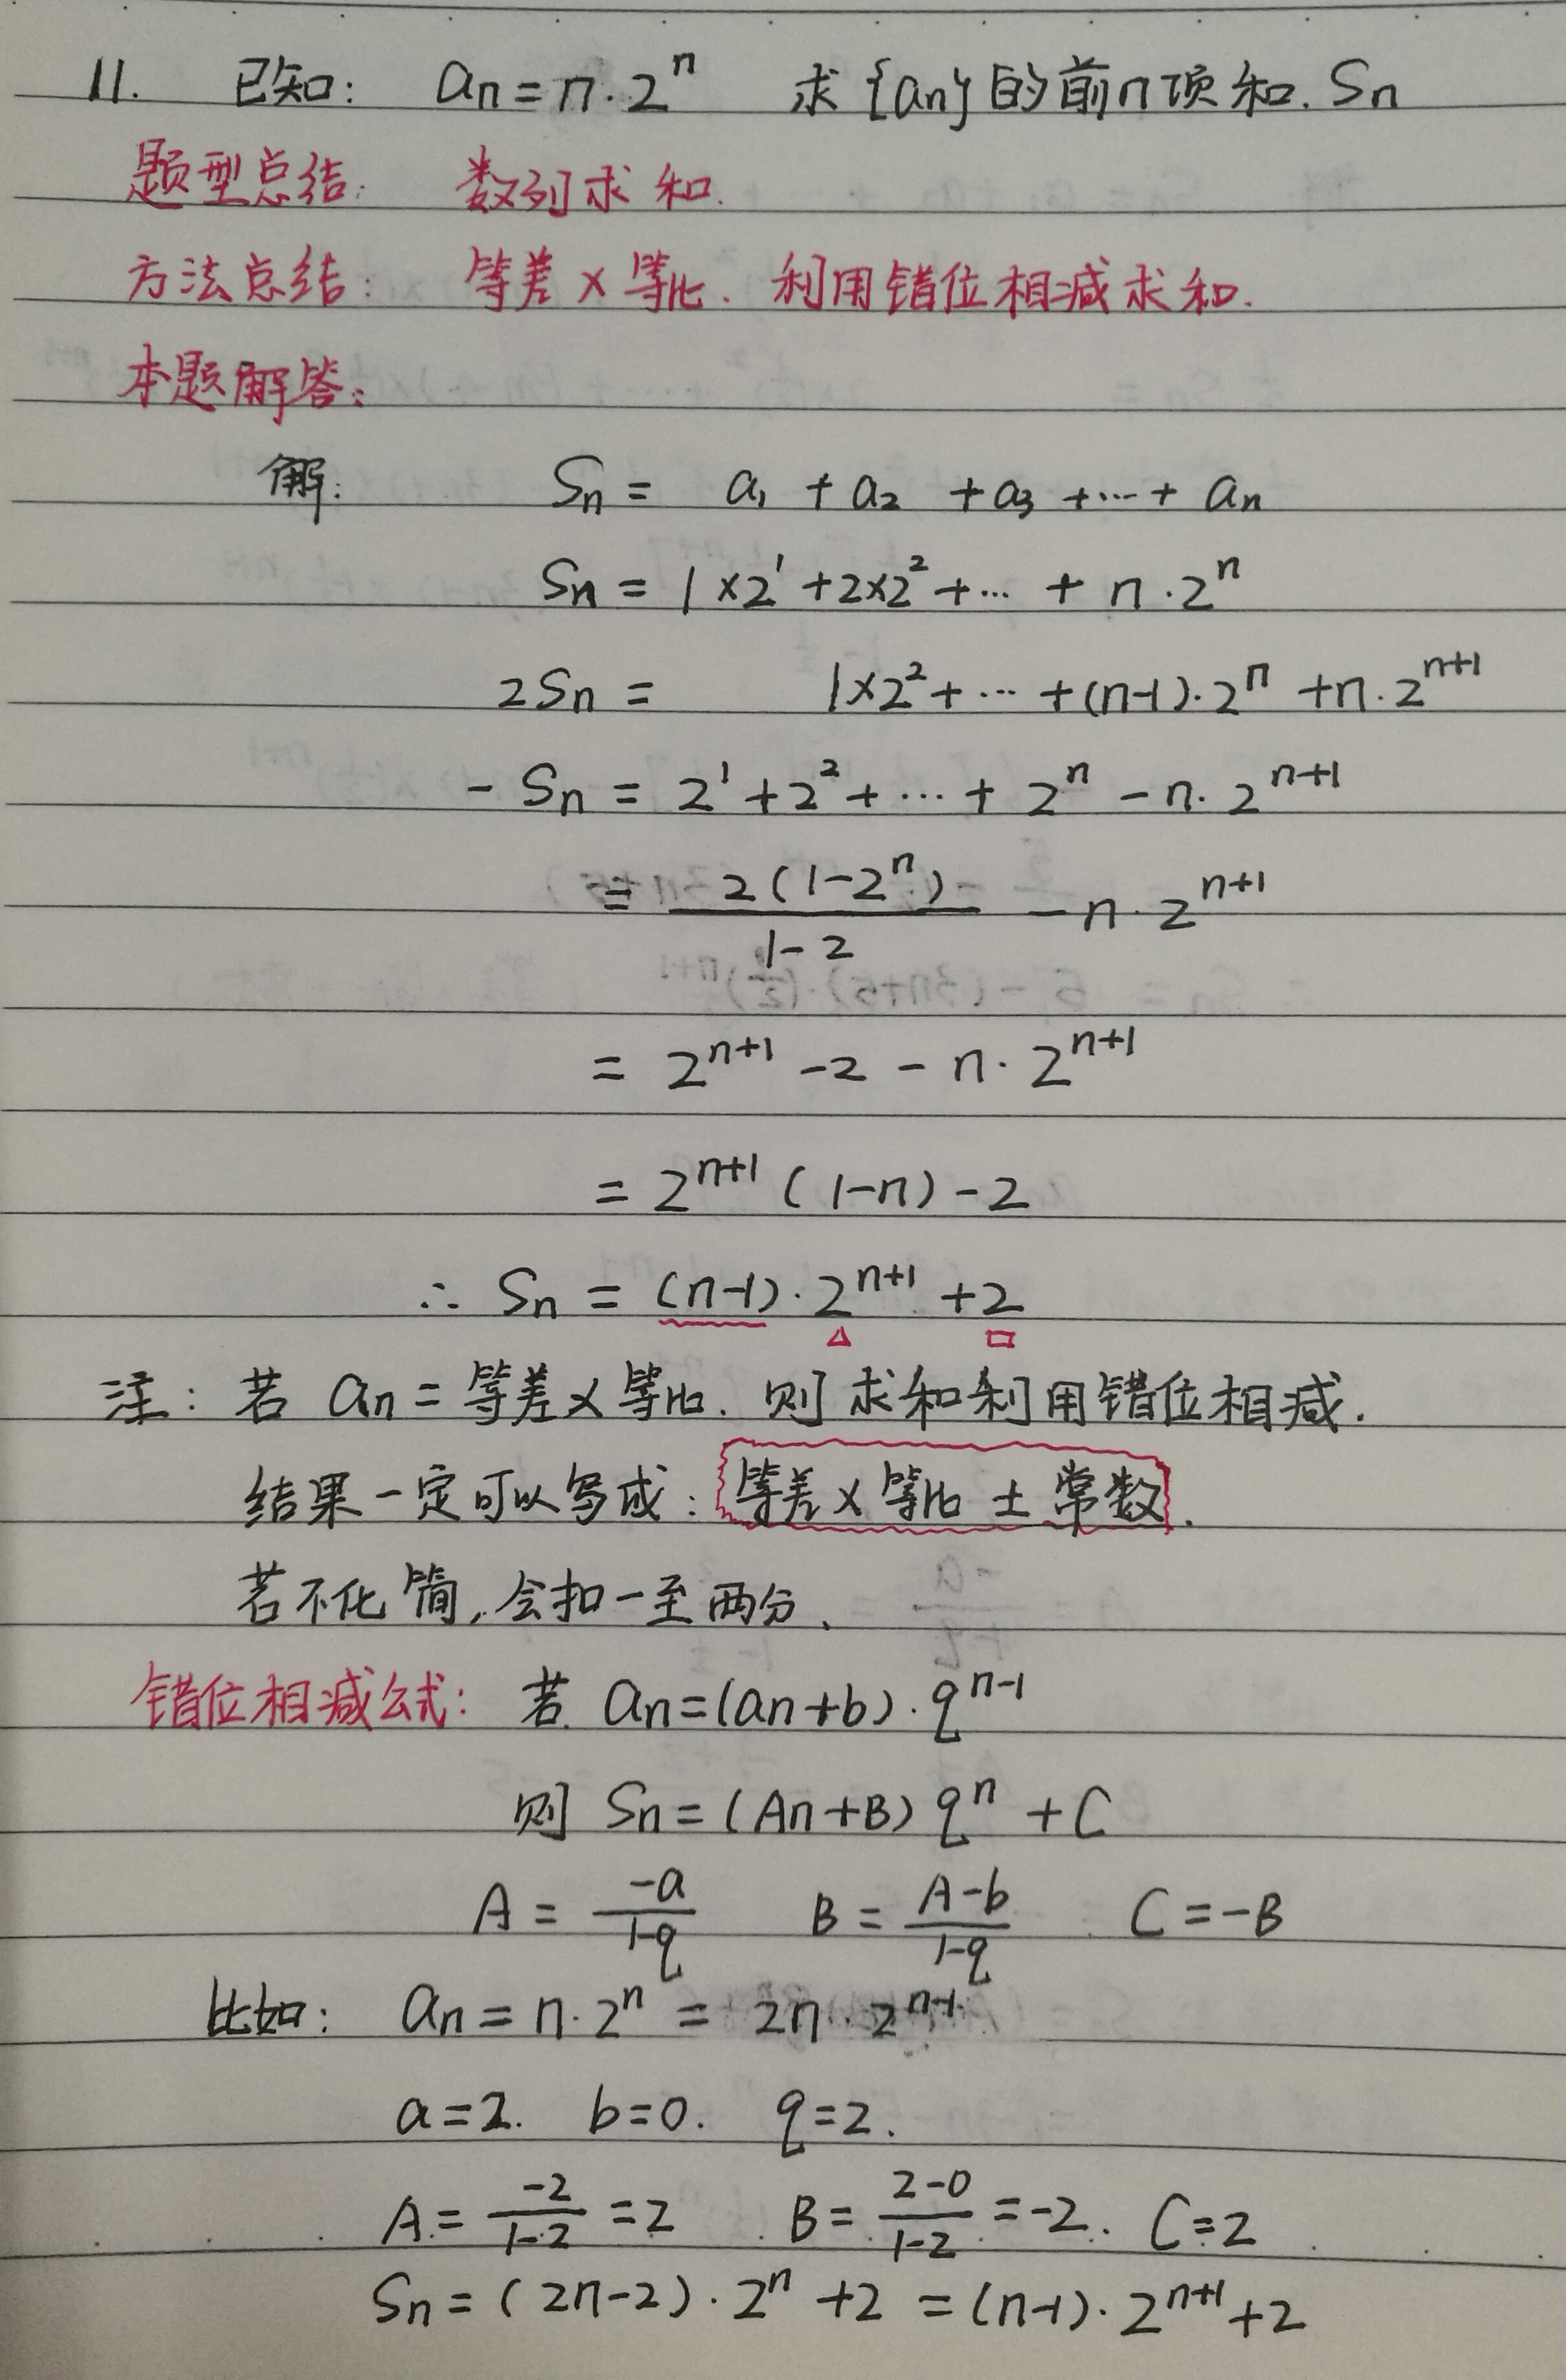 11. 已知: an=n·2^n 求{an}的前n项和. Sn
题型总结: 数列求和.
方法总结: 等差×等比. 利用错位相减求和.
本题解答:
解: Sn = a₁ + a₂ + a₃ + ··· + an
Sn = 1×2^1 + 2×2^2 + ··· + n·2^n
2Sn = 1×2^2 + ··· + (n-1)·2^n + n·2^(n+1)
- Sn = 2^1 + 2^2 + ··· + 2^n - n·2^(n+1)
= 2(1-2^n)/(1-2) - n·2^(n+1)
= 2^(n+1) - 2 - n·2^(n+1)
= 2^(n+1) (1-n) - 2
∴ Sn = (n-1)·2^(n+1) + 2
注: 若 an = 等差×等比. 则求和利用错位相减.
结果一定可以写成: 等差×等比 ± 常数.
若不化简, 会扣一至两分.
错位相减公式: 若 an=(an+b)·q^(n-1)
则 Sn=(An+B) q^n + C
A = -a/(1-q) B = (A-b)/(1-q) C=-B
比如: an = n·2^n = 2n·2^(n-1)
a=2. b=0. q=2.
A = -2/(1-2) = 2 B = (2-0)/(1-2) = -2. C=2
Sn = (2n-2)·2^n + 2 = (n-1)·2^(n+1) + 2